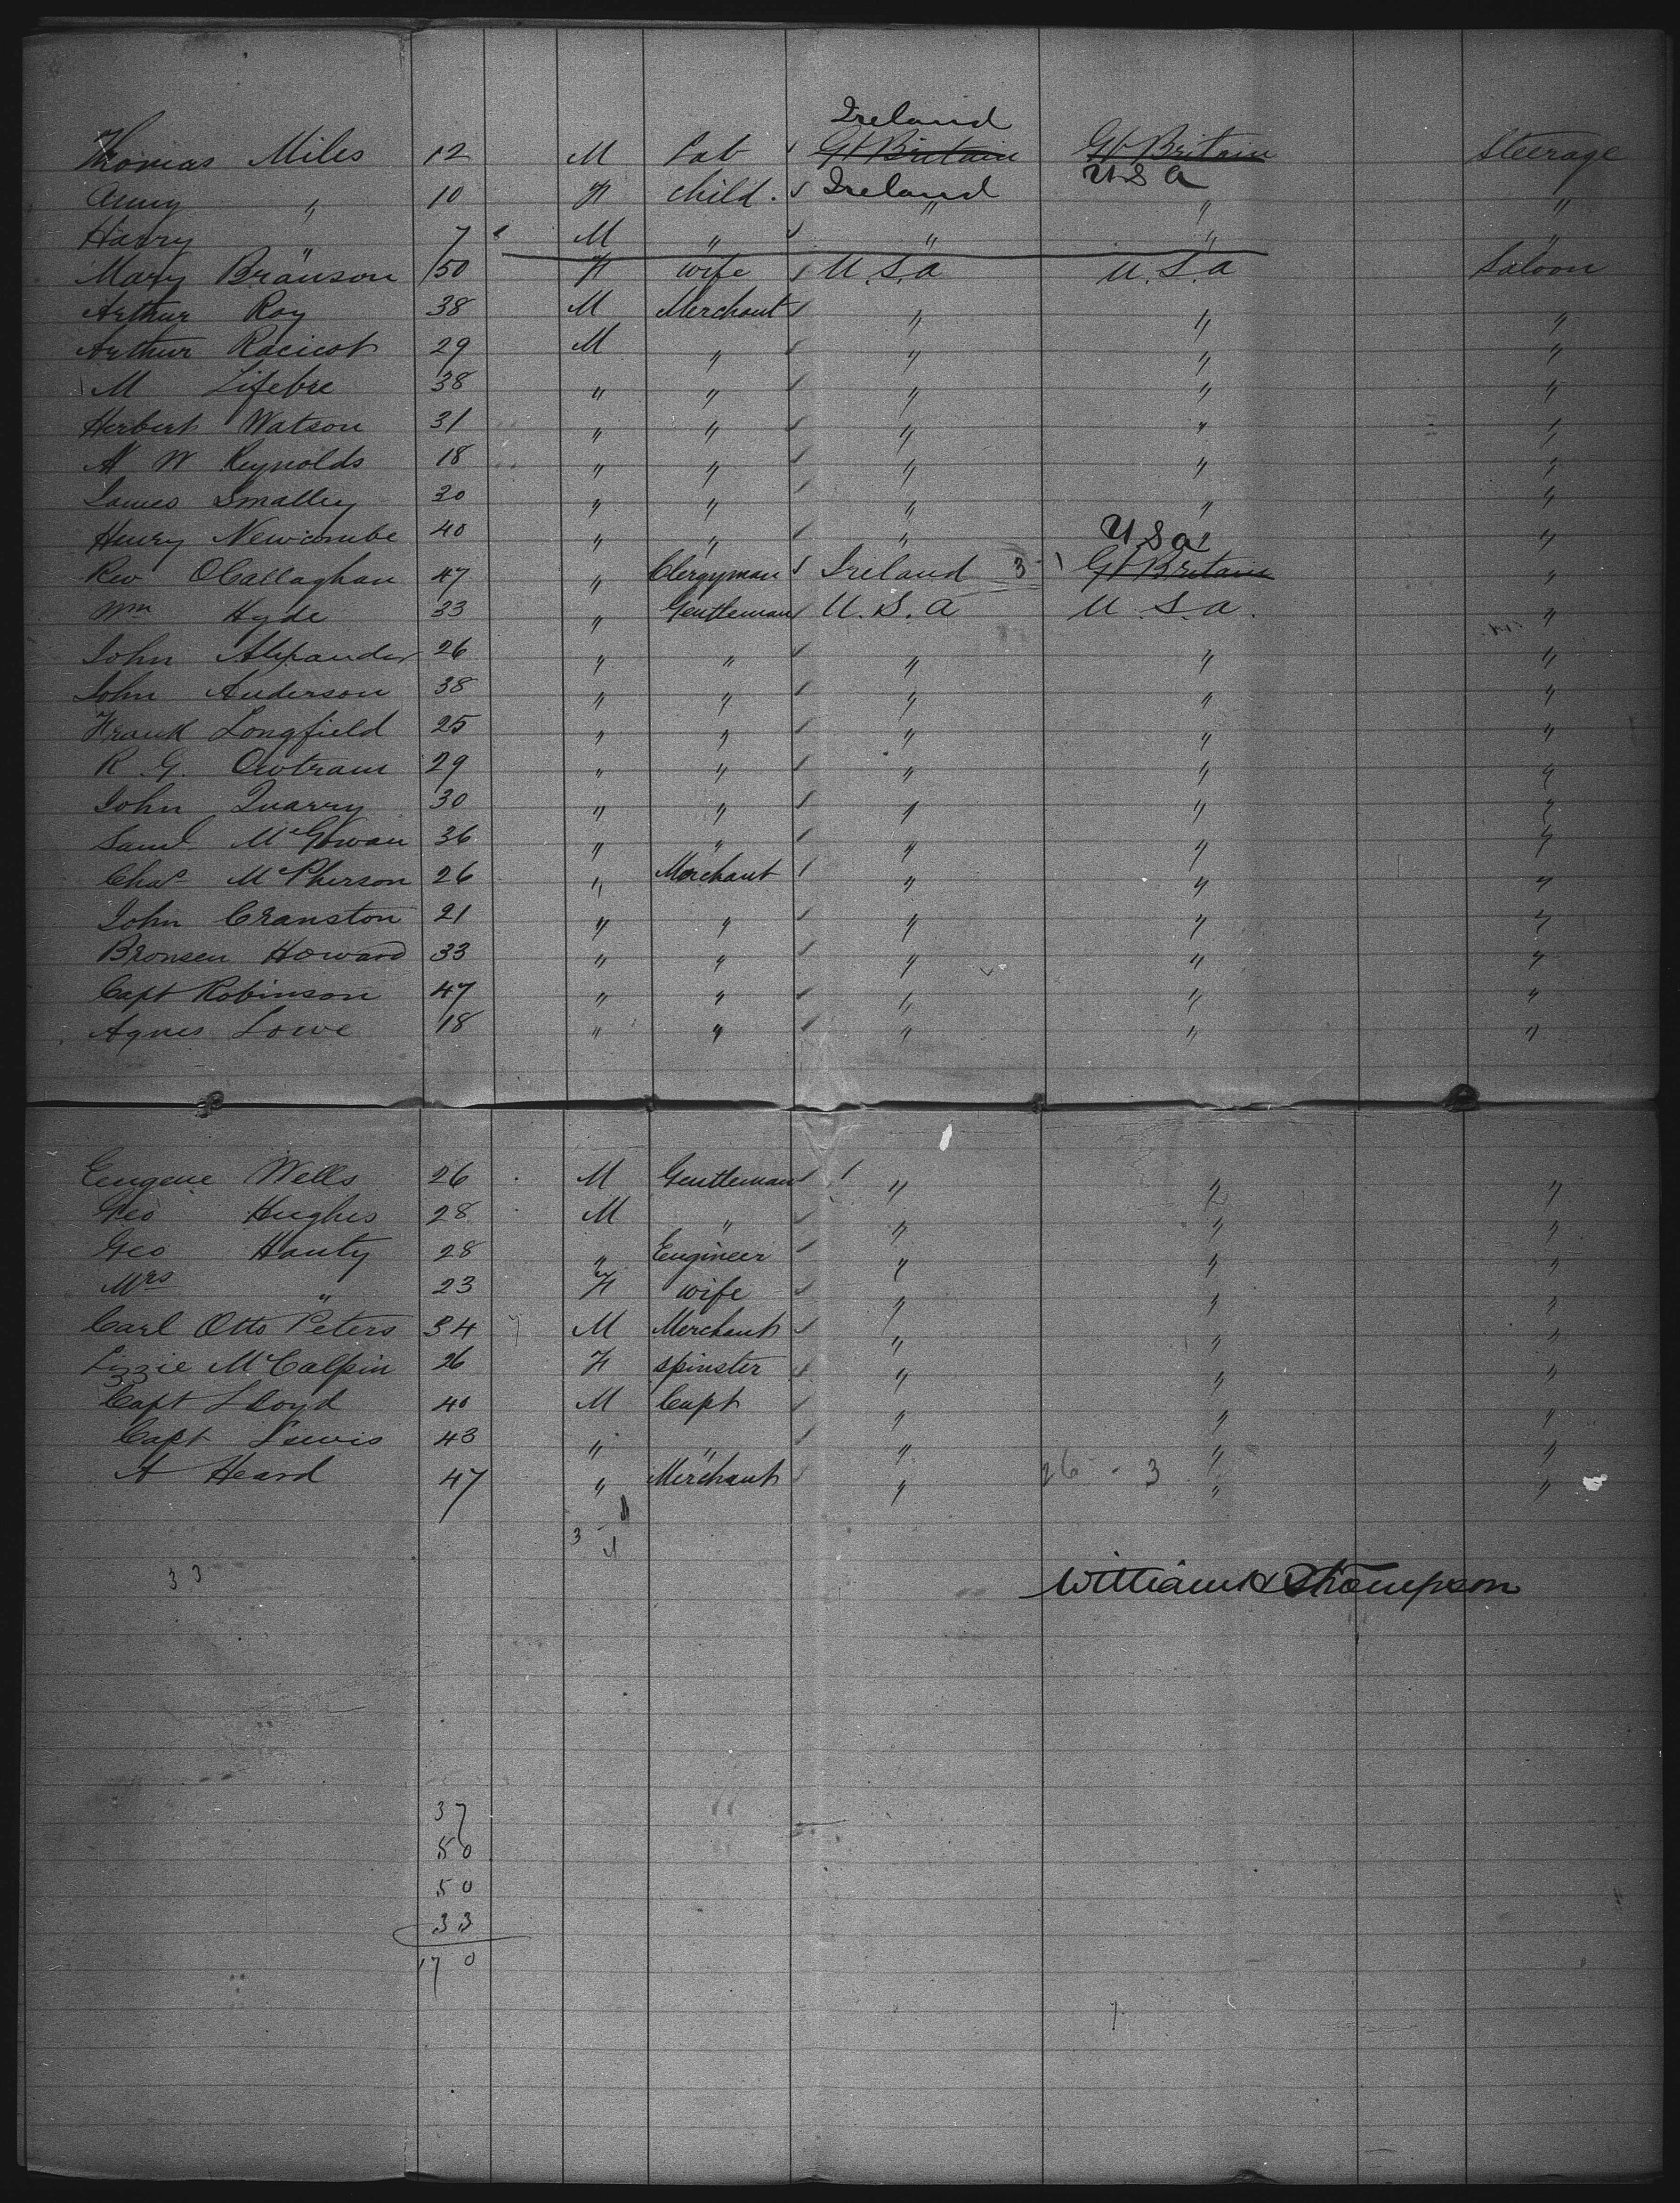 Ireland
Thomas Miles 12 M Lab Gt Britain Gt Britain Steerage
U S A
Amy " 10 F child. Ireland " " "
Harry " 7 M " " " "
Mary Branson 50 F wife U.S.A U.S.A Saloon
Arthur Roy 38 M Merchant " " "
Arthur Racicot 29 M " " " "
M Lifebre 38 " " " " "
Herbert Watson 31 " " " " "
A W Reynolds 18 " " " " "
James Smalley 30 " " " " "
Henry Newcombe 40 " " " " "
U S a
Rev OCallaghan 47 " Clergyman Ireland 3 Gt Britain "
Wm Hyde 33 " Gentleman U.S.A U.S.A. "
John Alexander 26 " " " " "
John Anderson 38 " " " " "
Frank Longfield 25 " " " " "
R G. Owtram 29 " " " " "
John Quarry 30 " " " " "
Saml McGowan 36 " " " " "
Chas McPherson 26 " Merchant " " "
John Cranston 21 " " " " "
Bronsen Howard 33 " " " " "
Capt Robinson 47 " " " " "
Agnes Lowe 18 " " " " "
Eugene Wells 26 M Gentleman " " "
Geo Hughes 28 M " " " "
Geo Hanty 28 " Engineer " " "
Mrs " 23 F wife " " "
Carl Otto Peters 34 M Merchant " " "
Lizzie McCalpin 26 F spinster " " "
Capt Lloyd 40 M Capt " " "
Capt Lewis 43 " " " " "
A Heard 47 " Merchant " 26 - 3 " "
3
33
William H Thompson
37
50
50
33
170